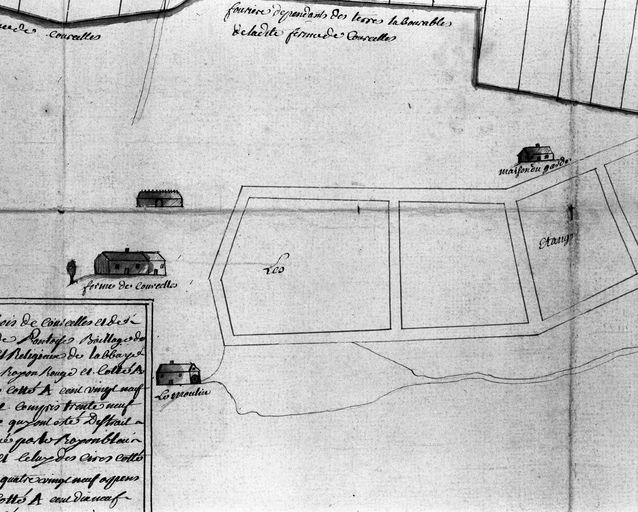 de courcelles
fouriere dependants des terres labourable
de ladite ferme de Courcelles
maison du garde
Les
Etang
ferme de Courcelles
Le moulin
bois de courcelles et de
de Pontoise Baillage de
et Religieux de labbaye
Rayon Rouge et Cotté A
cotté A cent vingt neuf
et compris trente neuf
qui ont été Distrait
par le Rayon bleu
et celuy des cotté
quatre vingt neuf arpens
Cotté A cent dix neuf